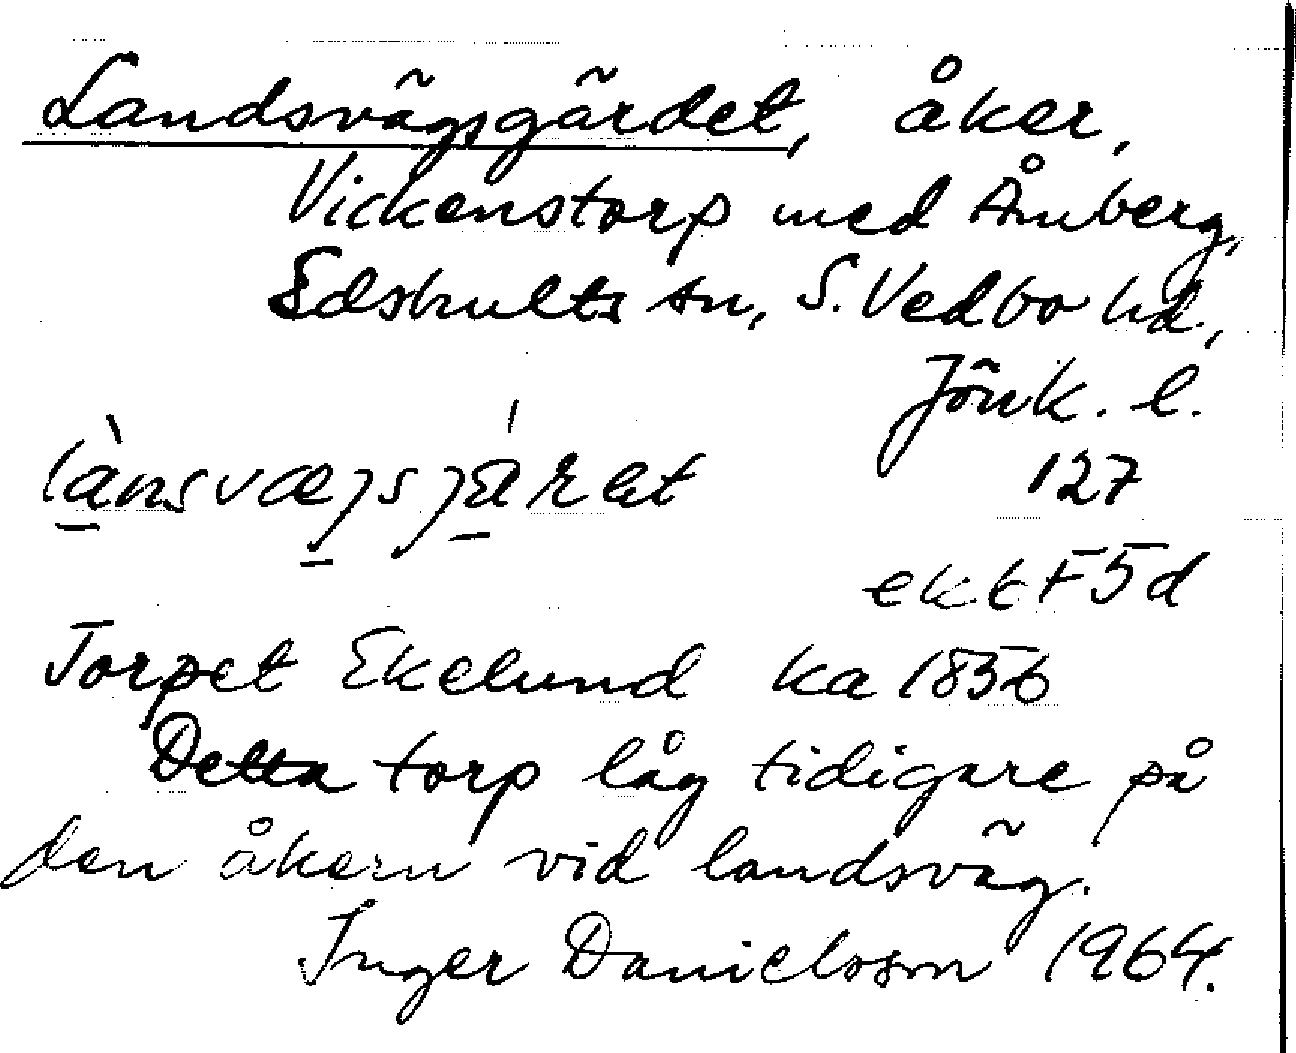 Landsvägsgärdet, åker,
Vickenstorp med Åmberg,
Edshults sn, S. Vedbo hd.,
Jönk. l.
127
ek k F 5 d
Torpet Ekelund ka 1856
Detta torp låg tidigare på
den åkern vid landsväg.
Inger Danielsson 1964.